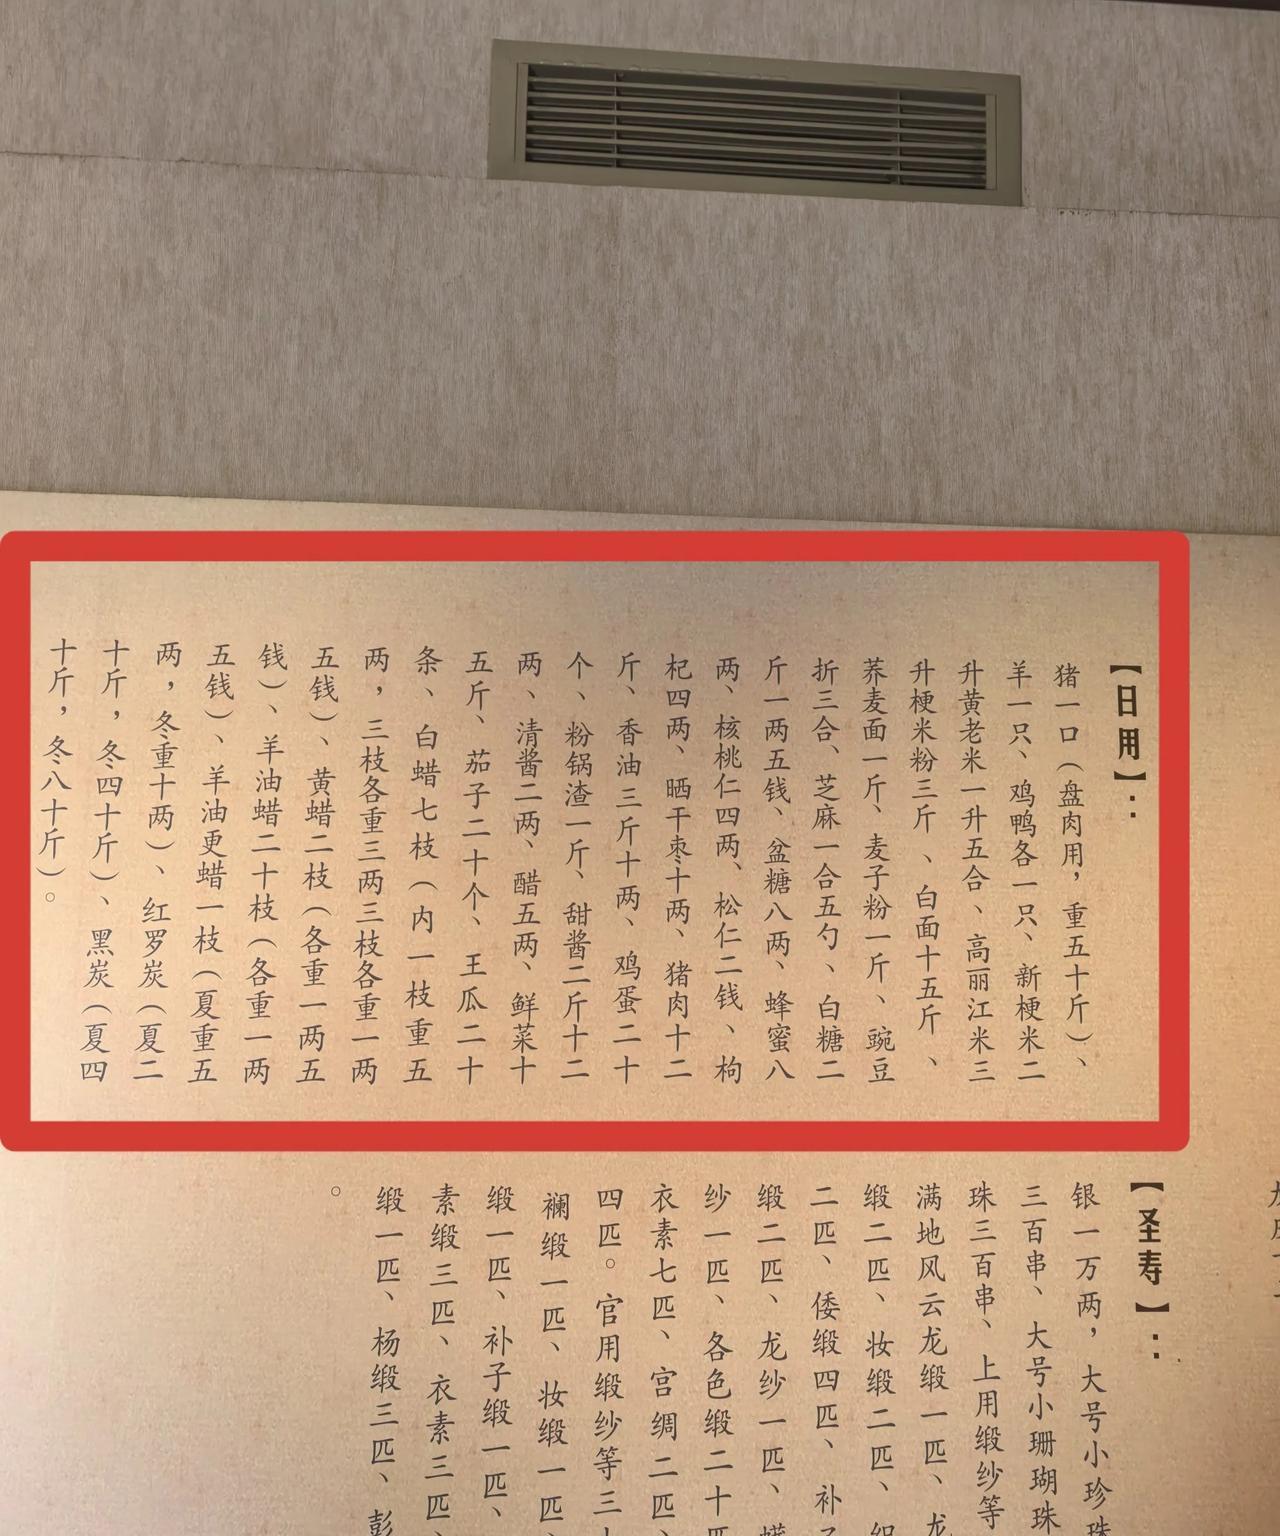 【日用】：
猪一口（盘肉用，重五十斤）、
羊一只、鸡鸭各一只、新梗米二
升黄老米一升五合、高丽江米三
升梗米粉三斤、白面十五斤、
荞麦面一斤、麦子粉一斤、豌豆
折三合、芝麻一合五勺、白糖二
斤一两五钱、盆糖八两、蜂蜜八
两、核桃仁四两、松仁二钱、枸
杞四两、晒干枣十两、猪肉十二
斤、香油三斤十两、鸡蛋二十
个、粉锅渣一斤、甜酱二斤十二
两、清酱二两、醋五两、鲜菜十
五斤、茄子二十个、王瓜二十
条、白蜡七枝（内一枝重五
两，三枝各重三两三枝各重一两
五钱）、黄蜡二枝（各重一两五
钱）、羊油蜡二十枝（各重一两
五钱）、羊油更蜡一枝（夏重五
两，冬重十两）、红罗炭（夏二
十斤，冬四十斤）、黑炭（夏四
十斤，冬八十斤）。
【圣寿】：
银一万两，大号小珍珠
三百串、大号小珊瑚珠
珠三百串、上用缎纱等
满地风云龙缎一匹、龙
缎二匹、妆缎二匹、织
二匹、倭缎四匹、补子
缎二匹、龙纱一匹、蟒
纱一匹、各色缎二十匹
衣素七匹、宫绸二匹、
四匹。官用缎纱等三十
襕缎一匹、妆缎一匹、
缎一匹、补子缎一匹、
素缎三匹、衣素三匹、
缎一匹、杨缎三匹、彭
。